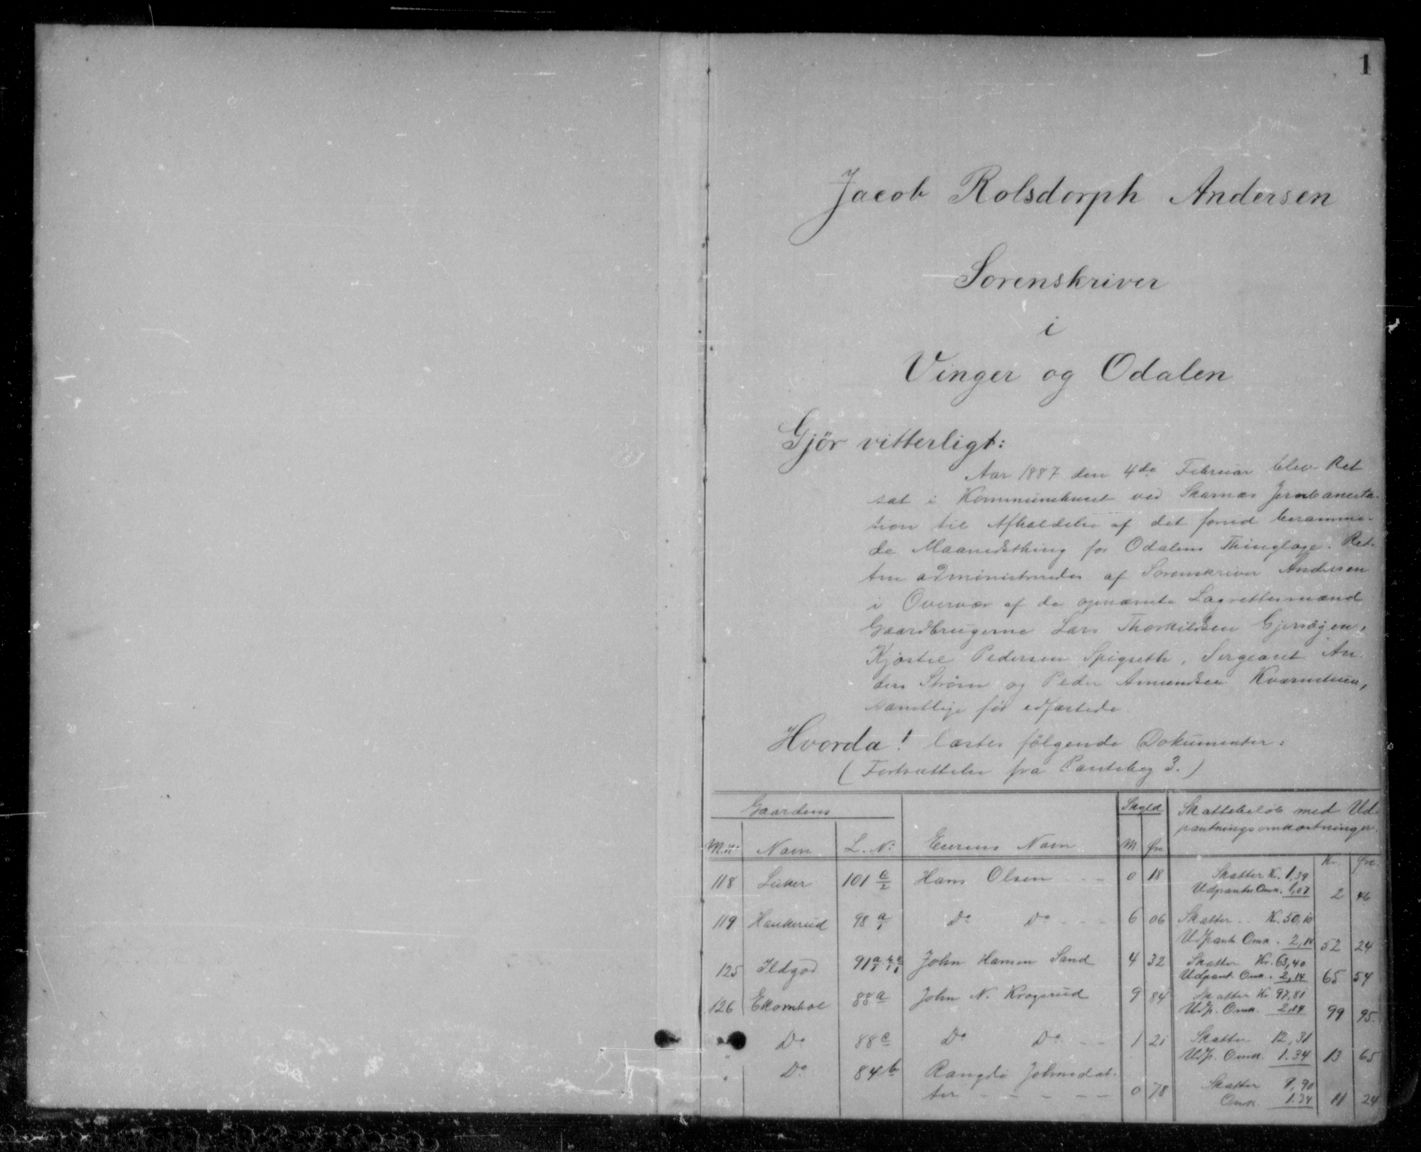 1
Jacob Rolsdorph Andersen
Sorenskriver
i
Vinger og Odalen
Gjör vitterligt:
Aar 1887 den 4de Februar blev Ret
sat i Kommunehuset ved Skarnæs Jernbanesta-
tion til Afholdelse af det forud beramme-
de Maanedsthing for Odalens Thinglag. Ret-
ten administreredes af Sorenskriver Andersen
i Overvær af de opnævnte Lagrettesmænd
Gaardbrugerne Lars Thorkildsen
Kjøstel Pedersen Spigseth, Sergeant An-
ders Strøm og Peder Amundsen
samtlige før edfæstede.
Hvorda! læstes følgende Dokumenter:
(Fortsættelse fra Pantebog 3.)
Gaardens Skyld Skattebeløb med Ud-
pantningsomkostninger.
M.N. Navn L. N. Eierens Navn M. Øre Kr. Øre
118 101 a/2 Hans Olsen - - 0 18 Skatter K. 1,39
Udpantn. Omk. 1,07 2 46
119 Haukerud 98 Do Do - - - 6 06 Skatter .. K. 50,10
Udpant. Omk. 2,14 52 24
125 Ildgod 91 John Hansen Sand 4 32 Skatter Kr. 63,40
Udpant. Omk. 2,14 65 54
126 Ekornhol 88 a John N. Krogerud 9 84 Skatter Kr. 97,81
Udp. Omk. 2,14 99 95
" Do 88 c Do Do - - 1 21 Skatter 12,31
Udp. Omk. 1.34 13 65
" Do 84 b Rangdi Johnsdat-
ter - - - - - 0 78 Skatter 9,90
Omk. 1.34 11 24